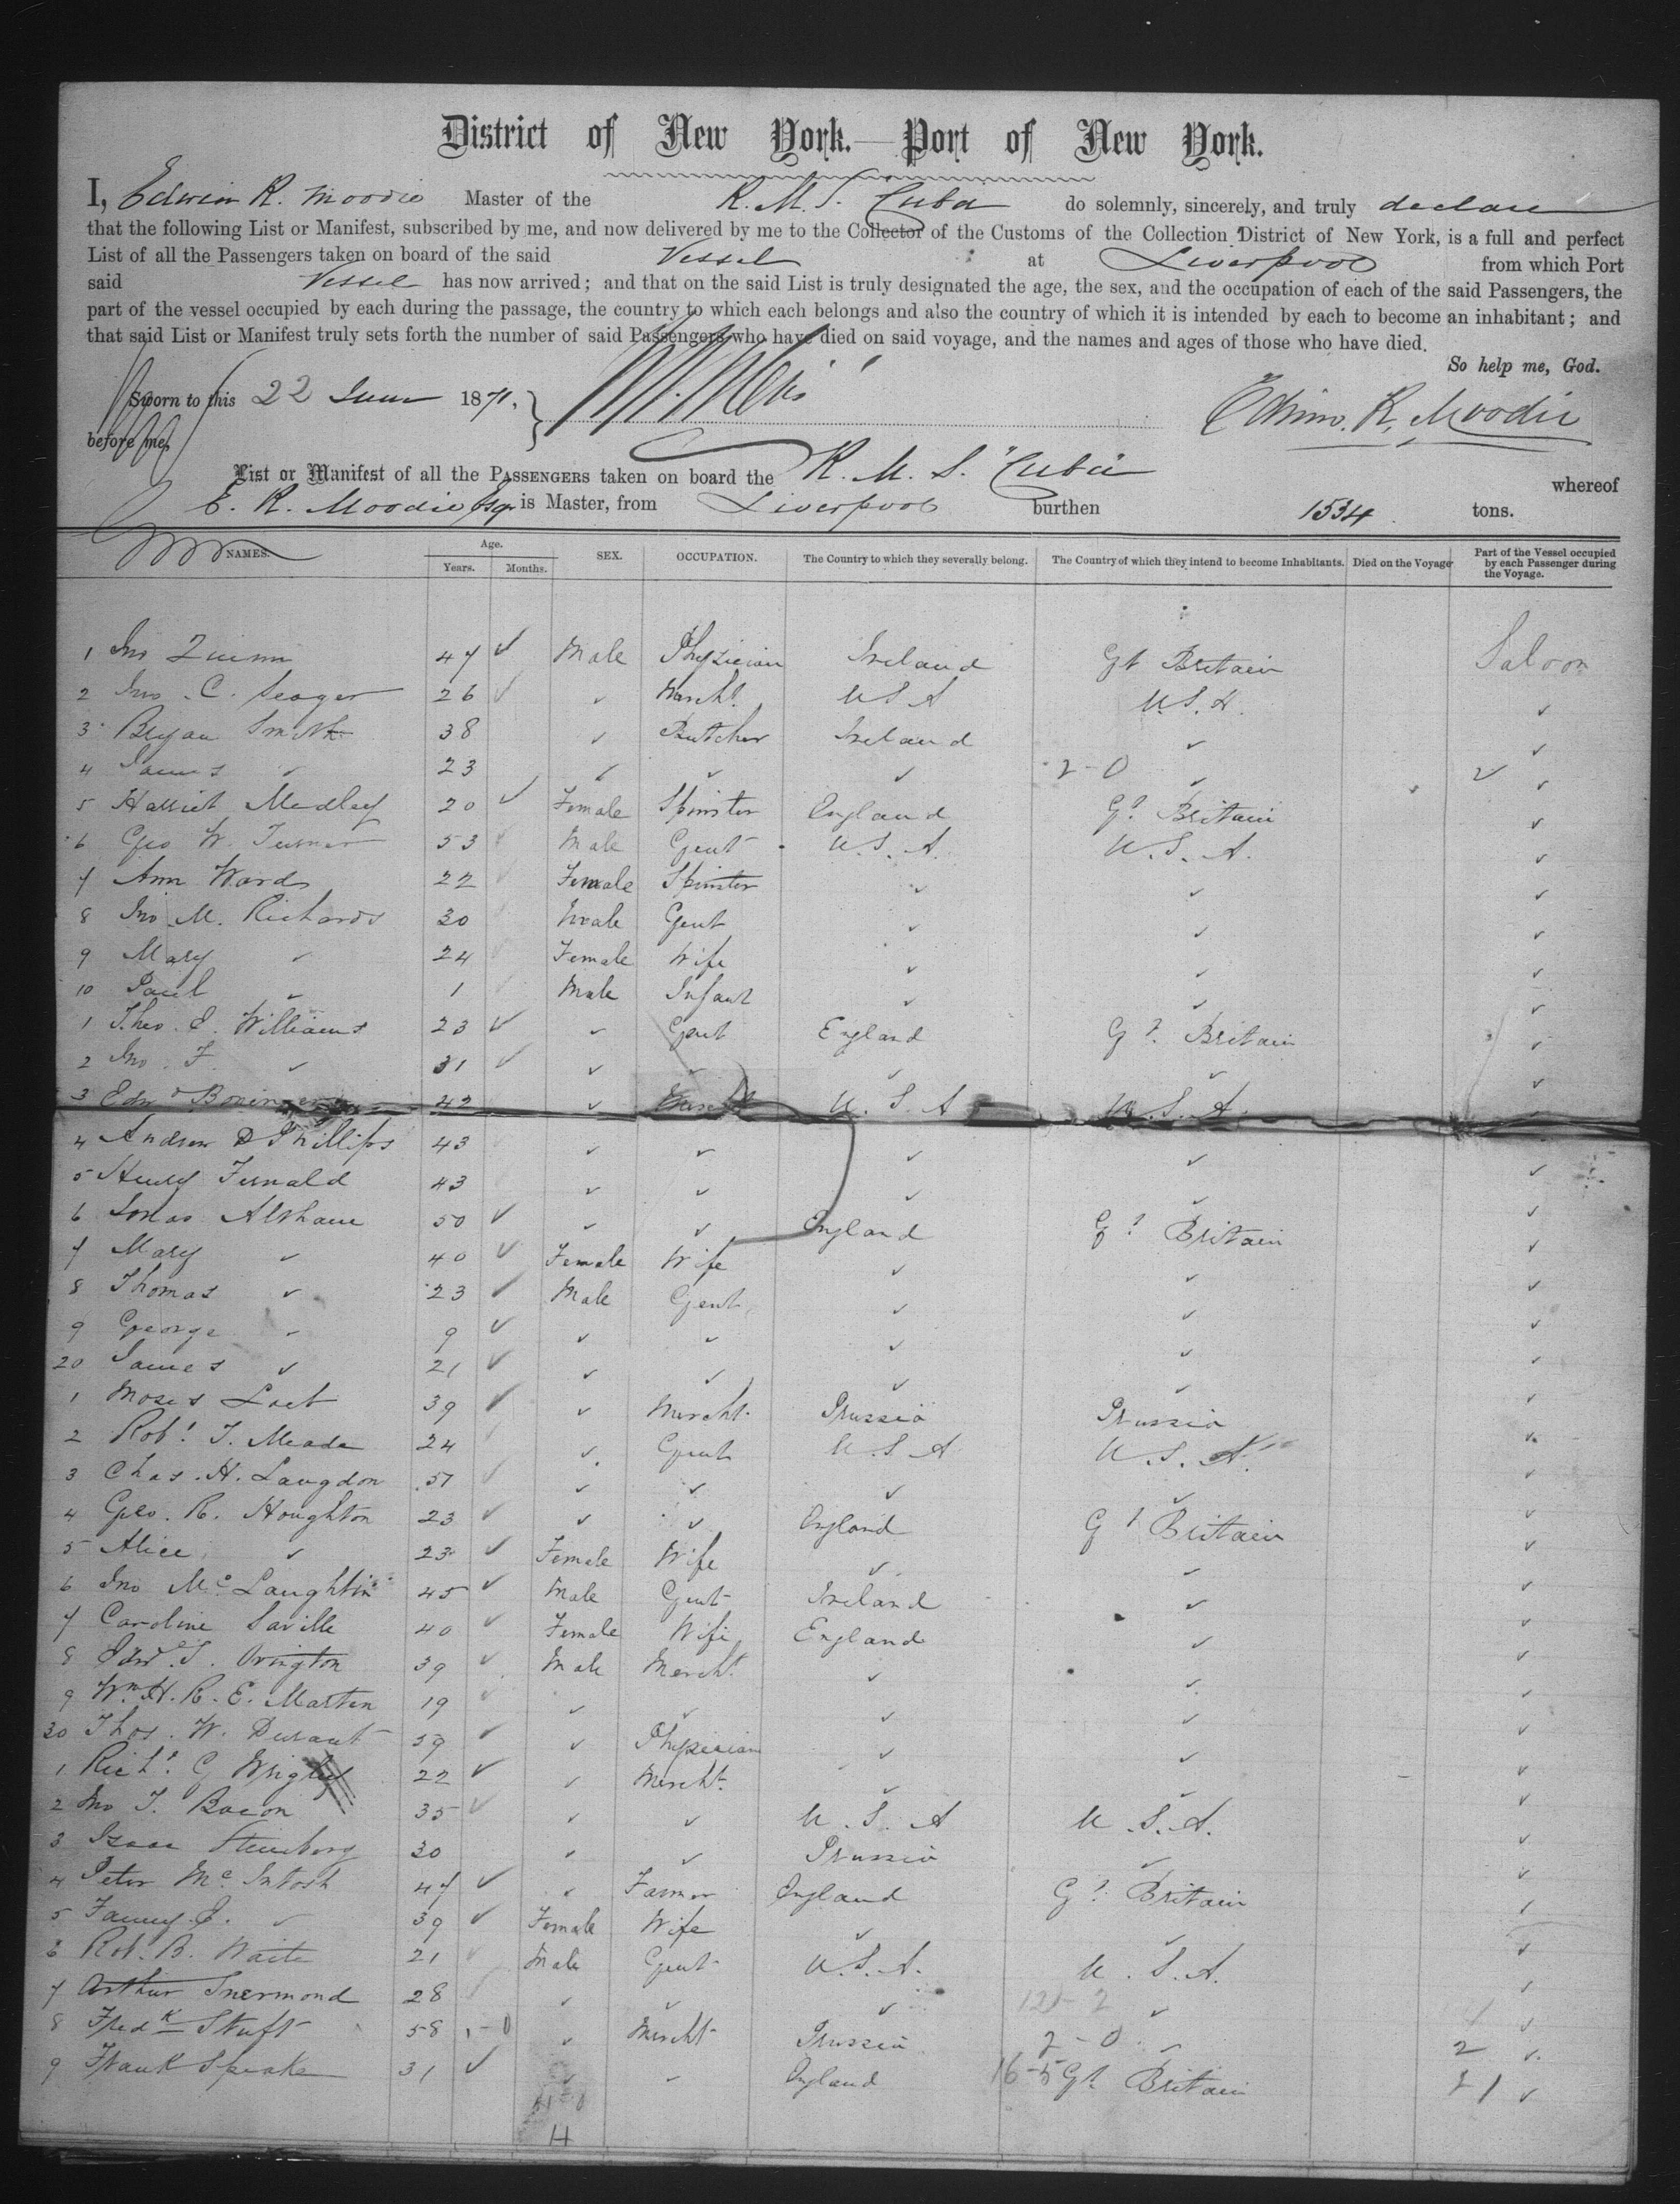 District of New York.—Port of New York.
I, Edwin R. Moodie Master of the R. M. S. Cuba do solemnly, sincerely, and truly declare
that the following List or Manifest, subscribed by me, and now delivered by me to the Collector of the Customs of the Collection District of New York, is a full and perfect
List of all the Passengers taken on board of the said Vessel at Liverpool from which Port
said Vessel has now arrived; and that on the said List is truly designated the age, the sex, and the occupation of each of the said Passengers, the
part of the vessel occupied by each during the passage, the country to which each belongs and also the country of which it is intended by each to become an inhabitant; and
that said List or Manifest truly sets forth the number of said Passengers who have died on said voyage, and the names and ages of those who have died.
So help me, God.
Sworn to this 22 June 1871,
before me, Edwin. R. Moodie
List or Manifest of all the PASSENGERS taken on board the R. M. S. "Cuba" whereof
E. R. Moodie Esq. is Master, from Liverpool burthen 1534 tons.
NAMES. Age. Years. Months. SEX. OCCUPATION. The Country to which they severally belong. The Country of which they intend to become Inhabitants. Died on the Voyage Part of the Vessel occupied by each Passenger during the Voyage.
1 Jno Quinn 47 ✓ Male Physician Ireland Gt Britain Saloon
2 Jno. C. Seager 26 ✓ ✓ Mercht. U S A U.S.A. ✓
3 Bryan Smith 38 ✓ Butcher Ireland ✓ ✓
4 James ✓ 23 ✓ ✓ ✓ 2-0 ✓ 2 ✓
5 Harriet Medley 20 ✓ Female Spinster England Gt Britain ✓
6 Geo W. Turner 53 ✓ Male Gent U.S.A. U.S.A. ✓
7 Ann Wards 22 ✓ Female Spinster ✓ ✓ ✓
8 Jno M. Richards 30 Male Gent ✓ ✓ ✓
9 Mary ✓ 24 Female Wife ✓ ✓ ✓
10 Paul ✓ 1 Male Infant ✓ ✓ ✓
1 Theo. E. Williams 23 ✓ ✓ Gent England Gt Britain ✓
2 Jno. F. ✓ 31 ✓ ✓ ✓ ✓ ✓ ✓
3 Edwd 42 ✓ U.S.A U.S.A. ✓
4 Andrew D Phillips 43 ✓ ✓ ✓ ✓ ✓
5 Henry Fernald 43 ✓ ✓ ✓ ✓ ✓
6 50 ✓ ✓ ✓ England Gt Britain ✓
7 Mary ✓ 40 ✓ Female Wife ✓ ✓ ✓
8 Thomas ✓ 23 ✓ Male Gent ✓ ✓ ✓
9 George ✓ 9 ✓ ✓ ✓ ✓ ✓ ✓
20 James ✓ 21 ✓ ✓ ✓ ✓ ✓ ✓
1 Moses 39 ✓ ✓ Mercht. Prussia Prussia ✓
2 Robt. T. Meade 24 ✓ Gent U.S.A U.S.A. ✓
3 Chas. H. Langdon 57 ✓ ✓ ✓ ✓ ✓ ✓
4 Geo. R. Houghton 23 ✓ ✓ ✓ England Gt Britain ✓
5 Alice ✓ 23 ✓ Female Wife ✓ ✓ ✓
6 Jno McLaughlin 45 ✓ Male Gent Ireland ✓ ✓
7 Caroline Saville 40 ✓ Female Wife England ✓ ✓
8 Edwd. T. Ovington 39 ✓ Male Mercht. ✓ ✓ ✓
9 Wm H. R. E. Marten 19 ✓ ✓ ✓ ✓ ✓ ✓
30 Thos. W. Durant 39 ✓ ✓ Physician ✓ ✓ ✓
1 Richd. G Wrigley 22 ✓ ✓ Mercht. ✓ ✓ ✓
2 Jno T. Bacon 35 ✓ ✓ ✓ U.S.A U.S.A. ✓
3 Isaac Steinberg 30 ✓ ✓ Prussia ✓ ✓
4 Peter McIntosh 47 ✓ ✓ Farmer England Gt Britain ✓
5 Fanny E. ✓ 39 ✓ Female Wife ✓ ✓ ✓
6 Rob. B. Waite 21 ✓ Male Gent U.S.A. U.S.A. ✓
7 Arthur 28 ✓ ✓ ✓ ✓ ✓ ✓
8 Fredk 58 1-0 ✓ Mercht Prussia 2-0 ✓ 2 ✓
9 Frank Speake 31 ✓ ✓ ✓ England 16-5 Gt Britain 21 ✓